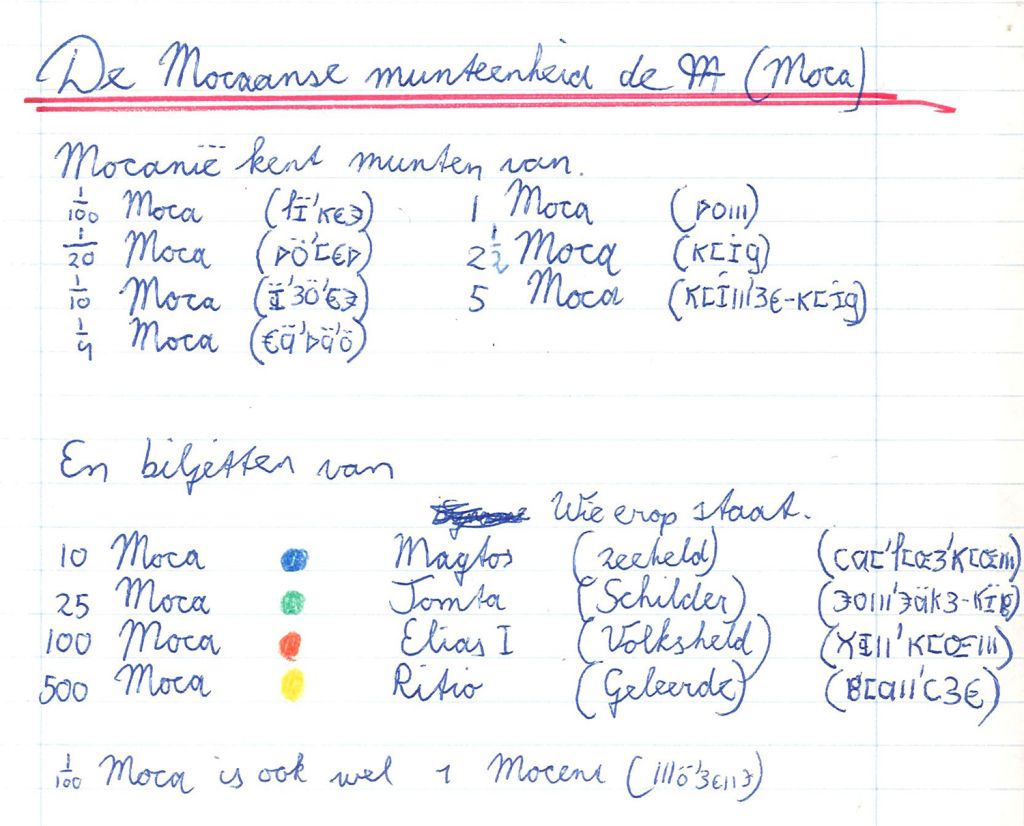 De Mocaanse munteenheid de M (Moca)
Mocanië kent munten van.
1/100 Moca 1 Moca
1/20 Moca 2 1/2 Moca
1/10 Moca 5 Moca
1/4 Moca
En biljetten van
Wie erop staat.
10 Moca Magtos (zeeheld)
25 Moca Tomta (Schilder)
100 Moca Elias I (Volksheld)
500 Moca Ritio (Geleerde)
1/100 Moca is ook wel 1 Mocent